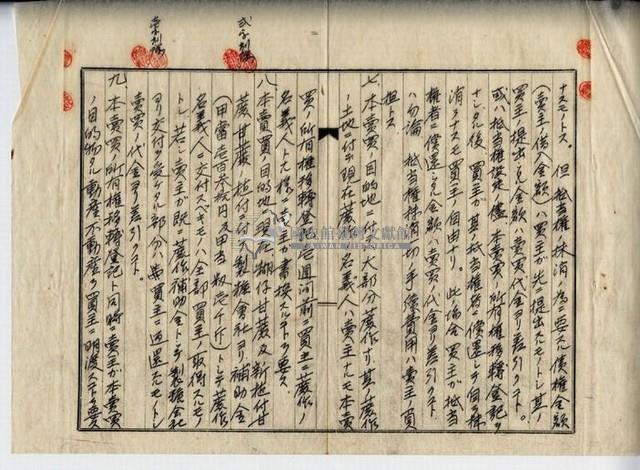 ナスモノトス、但シ抵当権抹消ノ為ニ要スル債権金額
(賣主ノ借入金額)ハ買主ガ先ニ提出スルモノトシ其ノ
買主ノ提出シタル金額ハ賣買代金ヨリ差引クモノトス。
或ハ抵当権設定ノ儘本賣買ノ所有権移轉登記ヲ
ナシタル後、買主ガ其ノ抵当権者ニ償還シテ自ラ抹
消ヲナスモ買主ノ自由ナリ。此場合買主ガ抵当
権者ニ償還シタル金額ハ賣買代金ヨリ差引クモノトス
ハ勿論抵当権抹消ノ切手續費用ハ賣主ノ負
担トス
七、本賣買ノ目的地ニハ大部分蔗作ナリ、其ノ蔗作
ノ土地ニ付テ現在蔗作名義人ハ賣主ナルモ本賣
買ノ所有権移轉登記 壱週间前ニ買主ニ蔗作ノ
名義人トナル様ニ賣主ハ書換スルモノヲ要ス
八、本賣買ノ目的地 現 甘蔗及新植付甘
蔗甘蔗植付ニ付製糖會社ヨリ補助金
(甲當壱百参拾円及甲当 千斤)トシテ蔗作
名義人ニ交付スベキモノハ全部買主ノ取得スルモノ
トシ若シ賣主ガ既ニ蔗作補助金トシテ製糖會社
ヨリ交付ヲ受ケタル部分ハ 買主ニ返還スルモノトシ
賣買ノ代金ヨリ差引クモノトス。
九、本賣買ノ所有権移轉登記ト同時ニ賣主ガ本賣買
ノ目的物タル動産不動産ヲ買主ニ明渡スモノヲ要
國史館臺灣文獻館
TAIWAN HISTORICA